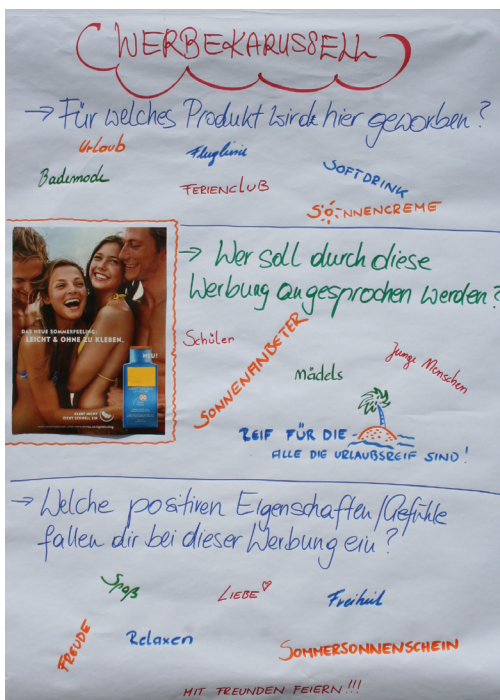 WERBEKARUSSELL
→ Für welches Produkt wird hier geworben?
Urlaub
Fluglinie
SOFTDRINK
Bademode
FERIENCLUB
SONNENCREME
→ Wer soll durch diese
Werbung angesprochen werden?
DAS NEUE SOMMERFEELING:
LEICHT & OHNE ZU KLEBEN.
NEU!
KLEBT NICHT
ZIEHT SCHNELL EIN
Schüler
SONNENANBETER
Mädels
Junge Menschen
REIF FÜR DIE
ALLE DIE URLAUBSREIF SIND!
→ Welche positiven Eigenschaften/Gefühle
fallen dir bei dieser Werbung ein?
Spaß
LIEBE♡
Freiheit
FREUDE
Relaxen
SOMMERSONNENSCHEIN
MIT FREUNDEN FEIERN!!!